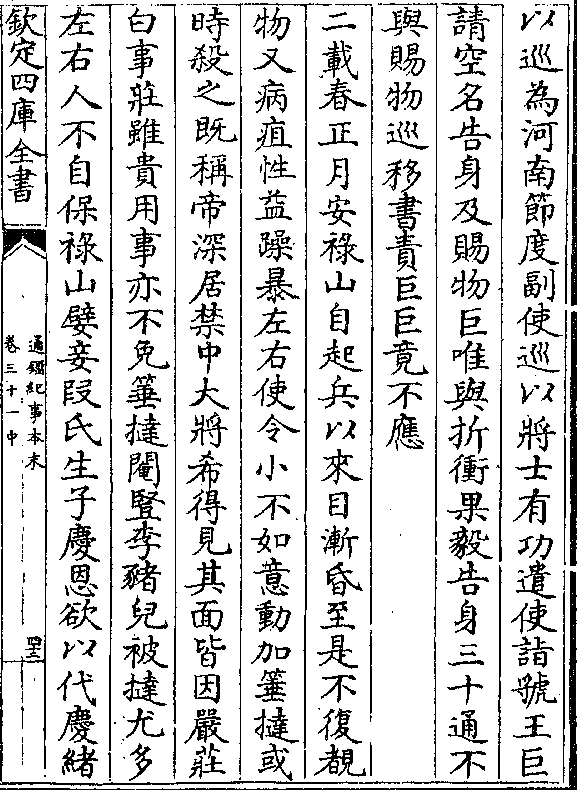 以巡為河南節度副使巡以將士有功遣使詣虢王巨
請空名告身及賜物巨唯與折衝果毅告身三十通不
與賜物巡移書責巨巨竟不應
二載春正月安祿山自起兵以來目漸昏至是不復覩
物又病疽性益躁暴左右使令小不如意動加箠撻或
時殺之既稱帝深居禁中大將希得見其面皆因嚴莊
白事莊雖貴用事亦不免箠撻閹豎李豬兒被撻尤多
左右人不自保祿山嬖妾叚氏生子慶恩欲以代慶緒
欽定四庫全書
通鑑紀事本末
卷三十一中
四三